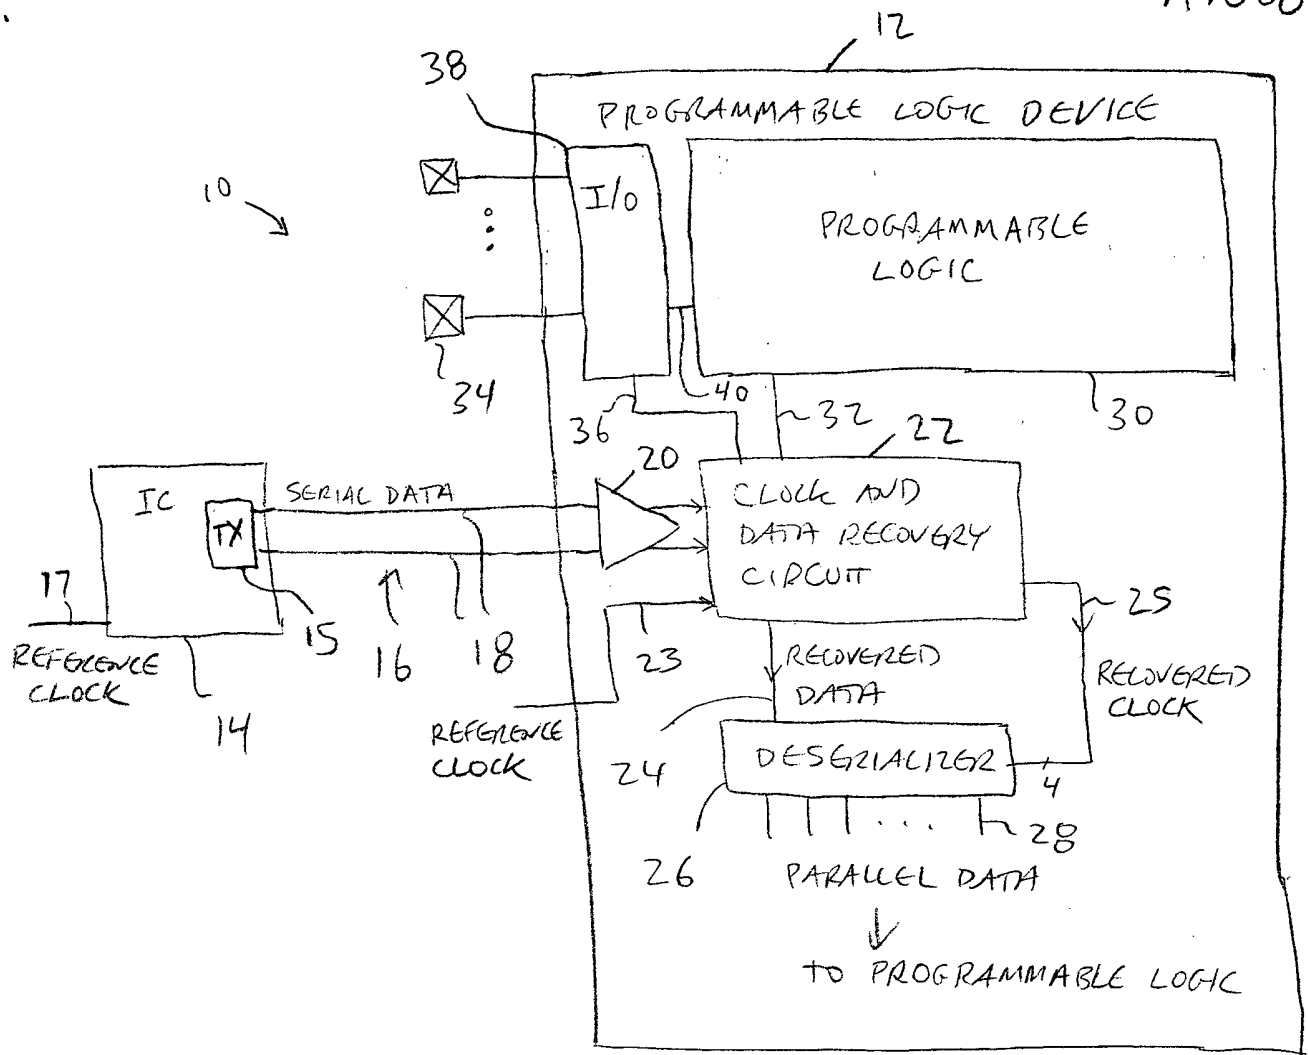 12
38
PROGRAMMABLE LOGIC DEVICE
10
I/O
PROGRAMMABLE
LOGIC
34
40
36
32
30
22
20
IC
SERIAL DATA
TX
CLOCK AND
DATA RECOVERY
CIRCUIT
17
15
16
18
23
25
REFERENCE
CLOCK
14
RECOVERED
DATA
RECOVERED
CLOCK
REFERENCE
CLOCK
24
DESERIALIZER
4
26
28
PARALLEL DATA
TO PROGRAMMABLE LOGIC